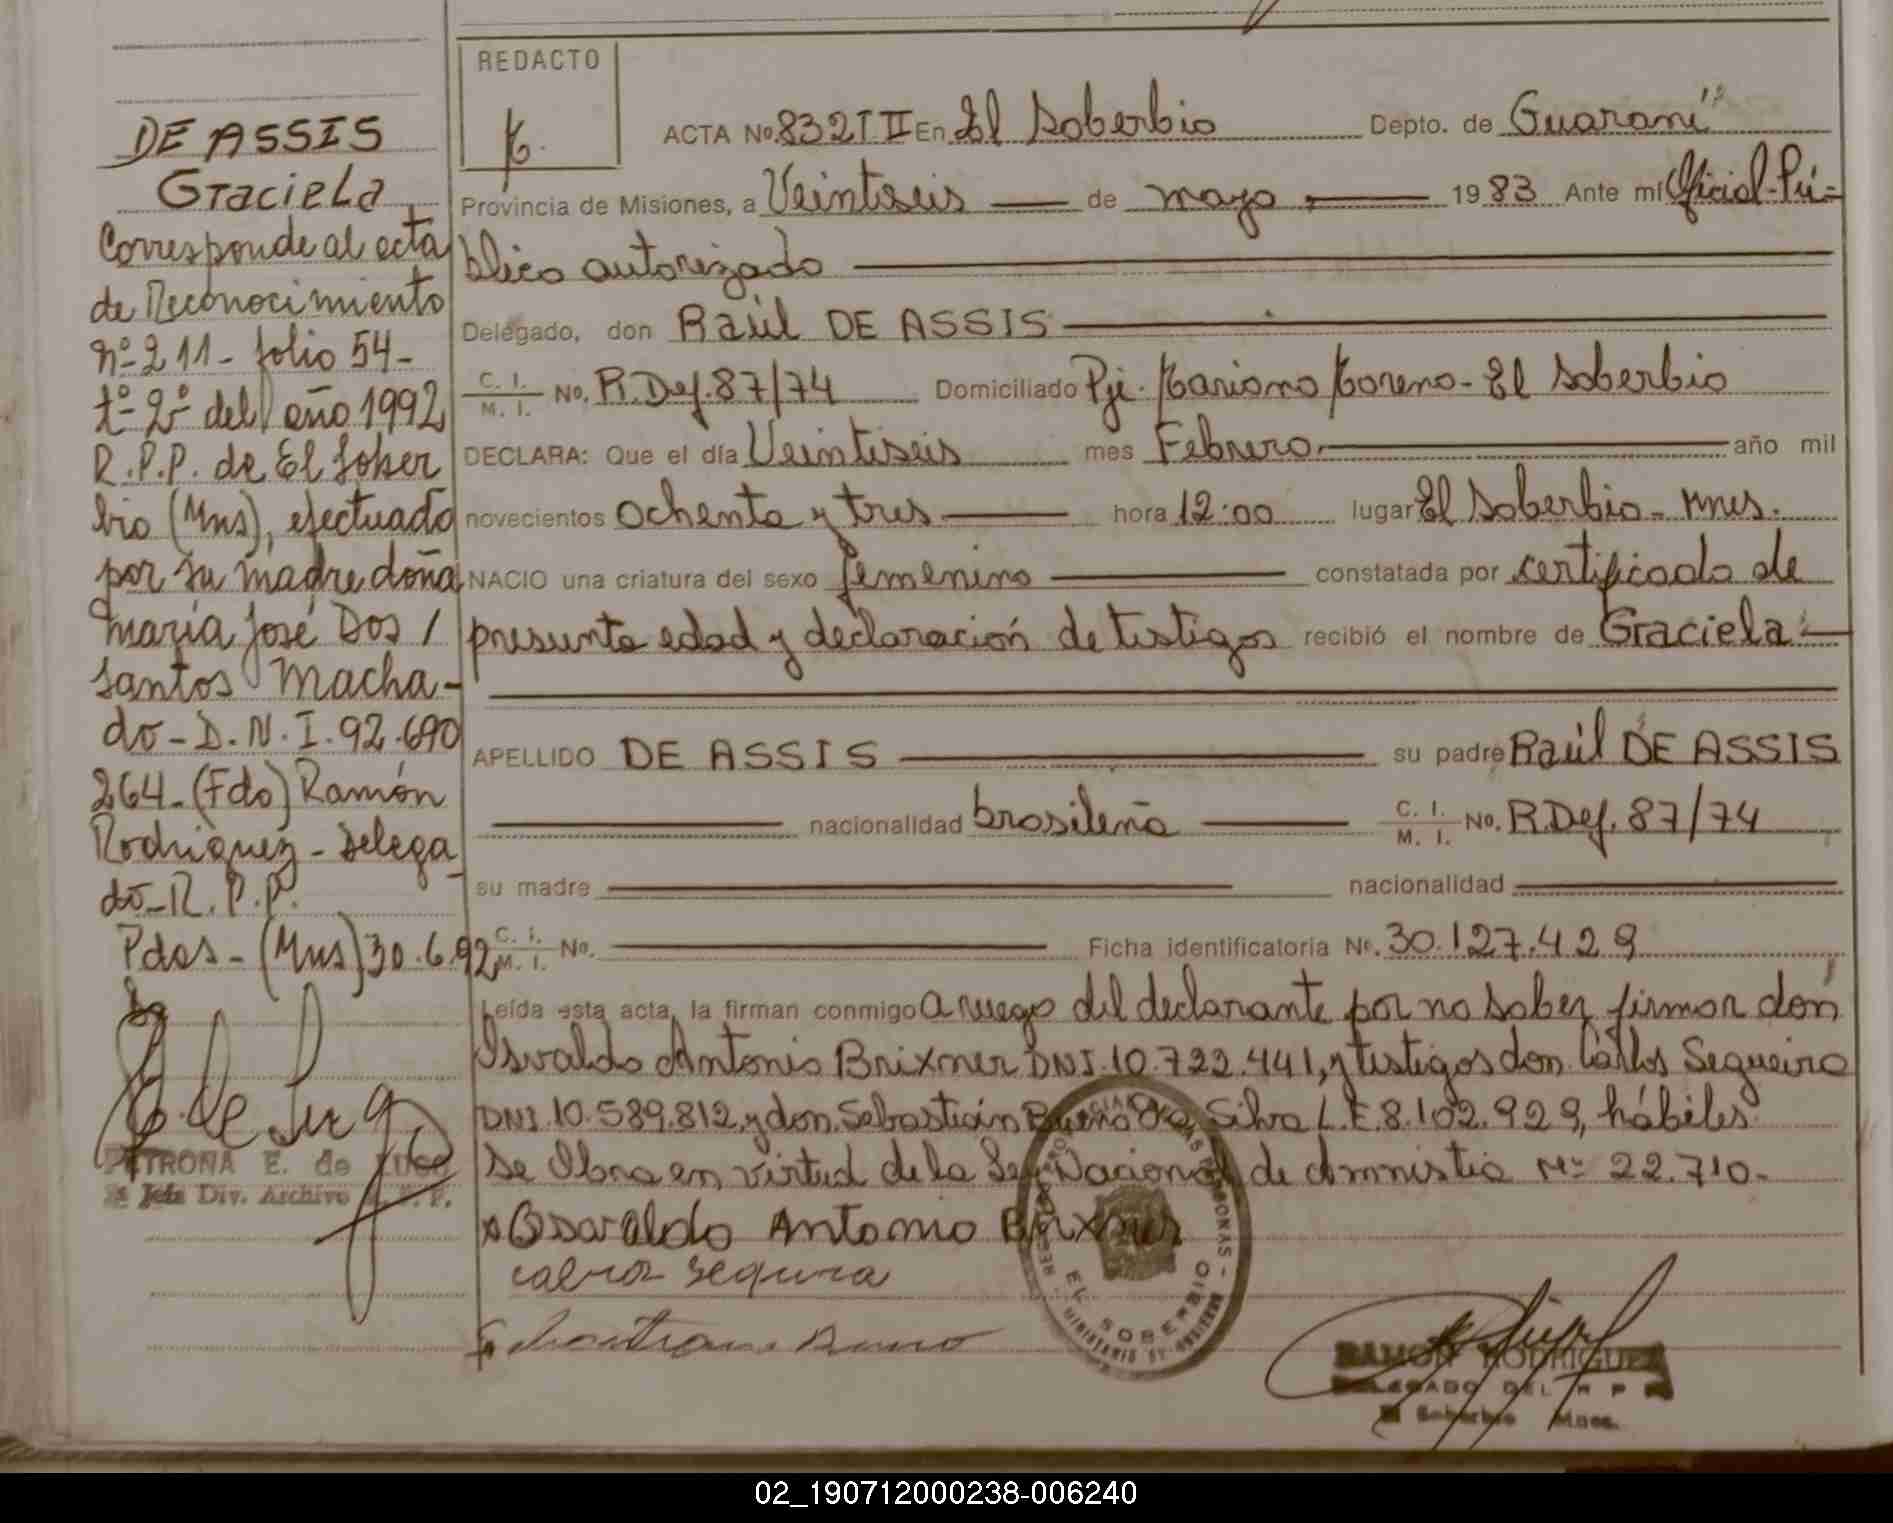 DE ASSIS
Graciela
Corresponde al acta
de Reconocimiento
nº 211 - folio 54 -
tº 2º del año 1992
R.P.P. de El Sober
bio (Mns), efectuado
por su madre doña
maría José Dos /
Santos Macha-
do - D.N.I. 92.690
264 - (Fdo) Ramón
Rodriguez - Delega
do - R.P.P.
Pdas - (Mns) 30.6.92
PETRONA E. de LUGO
Jefe Div. Archivo R.P.P.
REDACTO
ACTA No. 832 T II En El Soberbio Depto. de Guaraní
Provincia de Misiones, a Veintiseis de mayo 1983 Ante mí Oficial Pú=
blico autorizado
Delegado, don Raúl DE ASSIS
C. I. / M. I. No. R.Def. 87/74 Domiciliado Pje. Mariano Moreno - El Soberbio
DECLARA: Que el día Veintiseis mes Febrero año mil
novecientos ochenta y tres hora 12:00 lugar El Soberbio - Mnes.
NACIO una criatura del sexo femenino constatada por certificado de
presunta edad y declaración de testigos recibió el nombre de Graciela
APELLIDO DE ASSIS su padre Raúl DE ASSIS
nacionalidad brasileña C. I. / M. I. No. R.Def. 87/74
su madre nacionalidad
C. I. / M. I. No. Ficha identificatoria No. 30.127.429
Leída esta acta, la firman conmigo a ruego del declarante por no saber firmar don
Osvaldo Antonio Brixner DNI. 10.722.441, y testigos don Carlos Segueira
DNI. 10.589.812, y don Sebastián Bueno Da Silva L.E. 8.102.929, hábiles
Se Obra en virtud de la Ley Nacional de Amnistia Nº 22.710-
Osvaldo Antonio Brixner
EL SOBERBIO
MINISTERIO DE GOBIERNO
RAMON RODRIGUEZ
DELEGADO DEL R P P
El Soberbio Mnes.
02_190712000238-006240